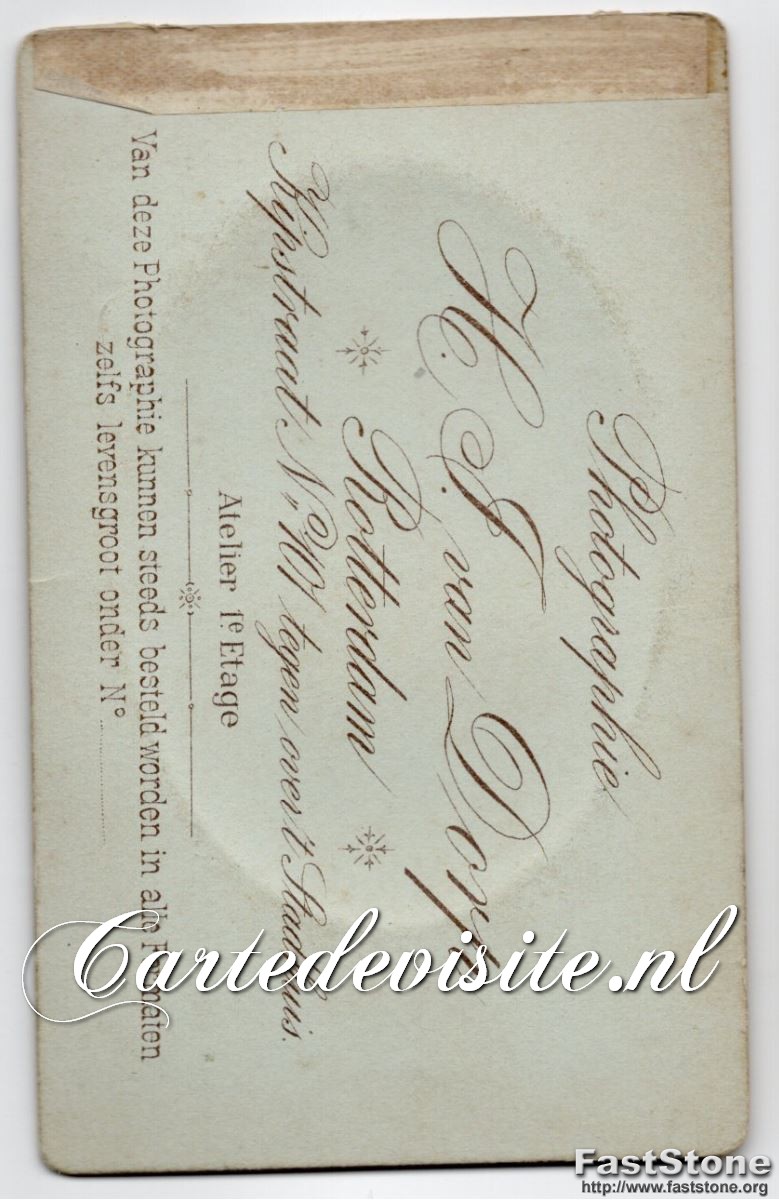 Photographie
H. J. van Dorp
Rotterdam
Kipstraat, No. 101 tegen over 't Stadhuis.
Atelier 1e Etage
Van deze Photographie kunnen steeds besteld worden in alle Formaten
zelfs levensgroot onder No
Cartedevisite.nl
FastStone
http://www.faststone.org